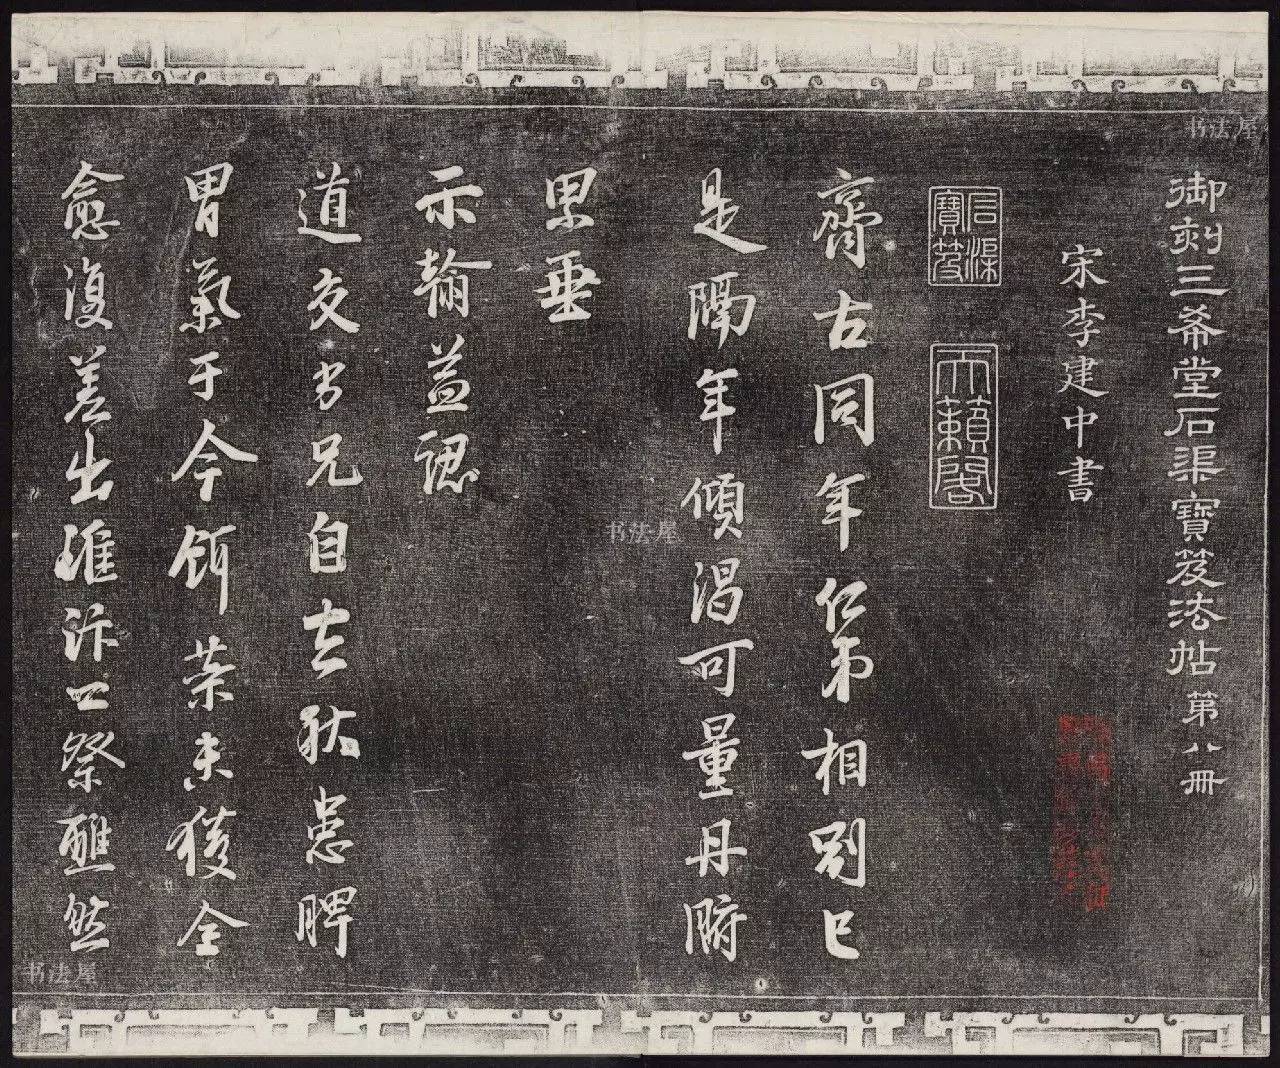 御刻三希堂石渠寶笈法帖第八冊
宋李建中書
石渠寶笈
天籟閣
齊古同年仁弟相別已
是隔年傾渴可量丹腑
思垂
示翰益認
道友劣兄自去秋患脾
胃氣于今餌藥未獲全
愈復差出淮汴口祭醮然
书法屋
书法屋
书法屋